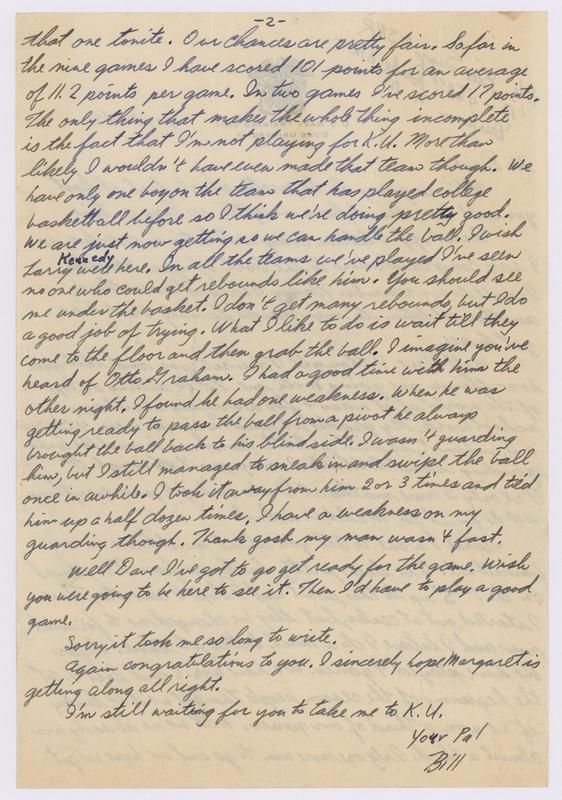 -2-
that one tonite. Our chances are pretty fair. So far in
the nine games I have scored 101 points for an average
of 11.2 points per game. In two games I've scored 17 points.
The only thing that makes the whole thing incomplete
is the fact that I'm not playing for K.U. More than
likely I wouldn't have even made that team though. We
have only one boy on the team that has played college
basketball before so I think we're doing pretty good.
We are just now getting so we can handle the ball. I wish
Kennedy
Larry were here. In all the teams we've played I've seen
no one who could get rebounds like him. You should see
me under the basket. I don't get many rebounds, but I do
a good job of trying. What I like to do is wait till they
come to the floor and then grab the ball. I imagine you've
heard of Otto Graham. I had a good time with him the
other night. I found he had one weakness. When he was
getting ready to pass the ball from a pivot he always
brought the ball back to his blind side. I wasn't guarding
him, but I still managed to sneak in and swipe the ball
once in awhile. I took it away from him 2 or 3 times and tied
him up a half dozen times. I have a weakness on my
guarding though. Thank gosh my man wasn't fast.
Well Dave I've got to go get ready for the game. Wish
you were going to be here to see it. Then I'd have to play a good
game.
Sorry it took me so long to write.
Again congratulations to you. I sincerely hope Margaret is
getting along all right.
I'm still waiting for you to take me to K.U.
Your Pal
Bill